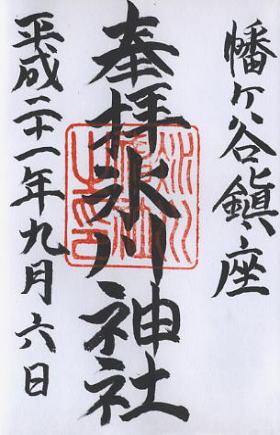 幡ケ谷鎮座
奉拝
氷川神社
平成二十一年九月六日